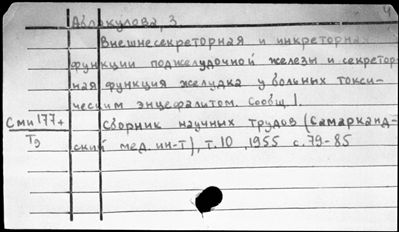 Аблакулова, З
Внешнесекреторная и инкреторная
функции поджелудочной железы и секретор-
ная функция желудка у больных токси-
ческим энцефалитом. Сообщ. 1.
Сми 177+
Т9
Сборник научных трудов (Самарканд-
ский мед. ин-т), т. 10, 1955 с. 79-85